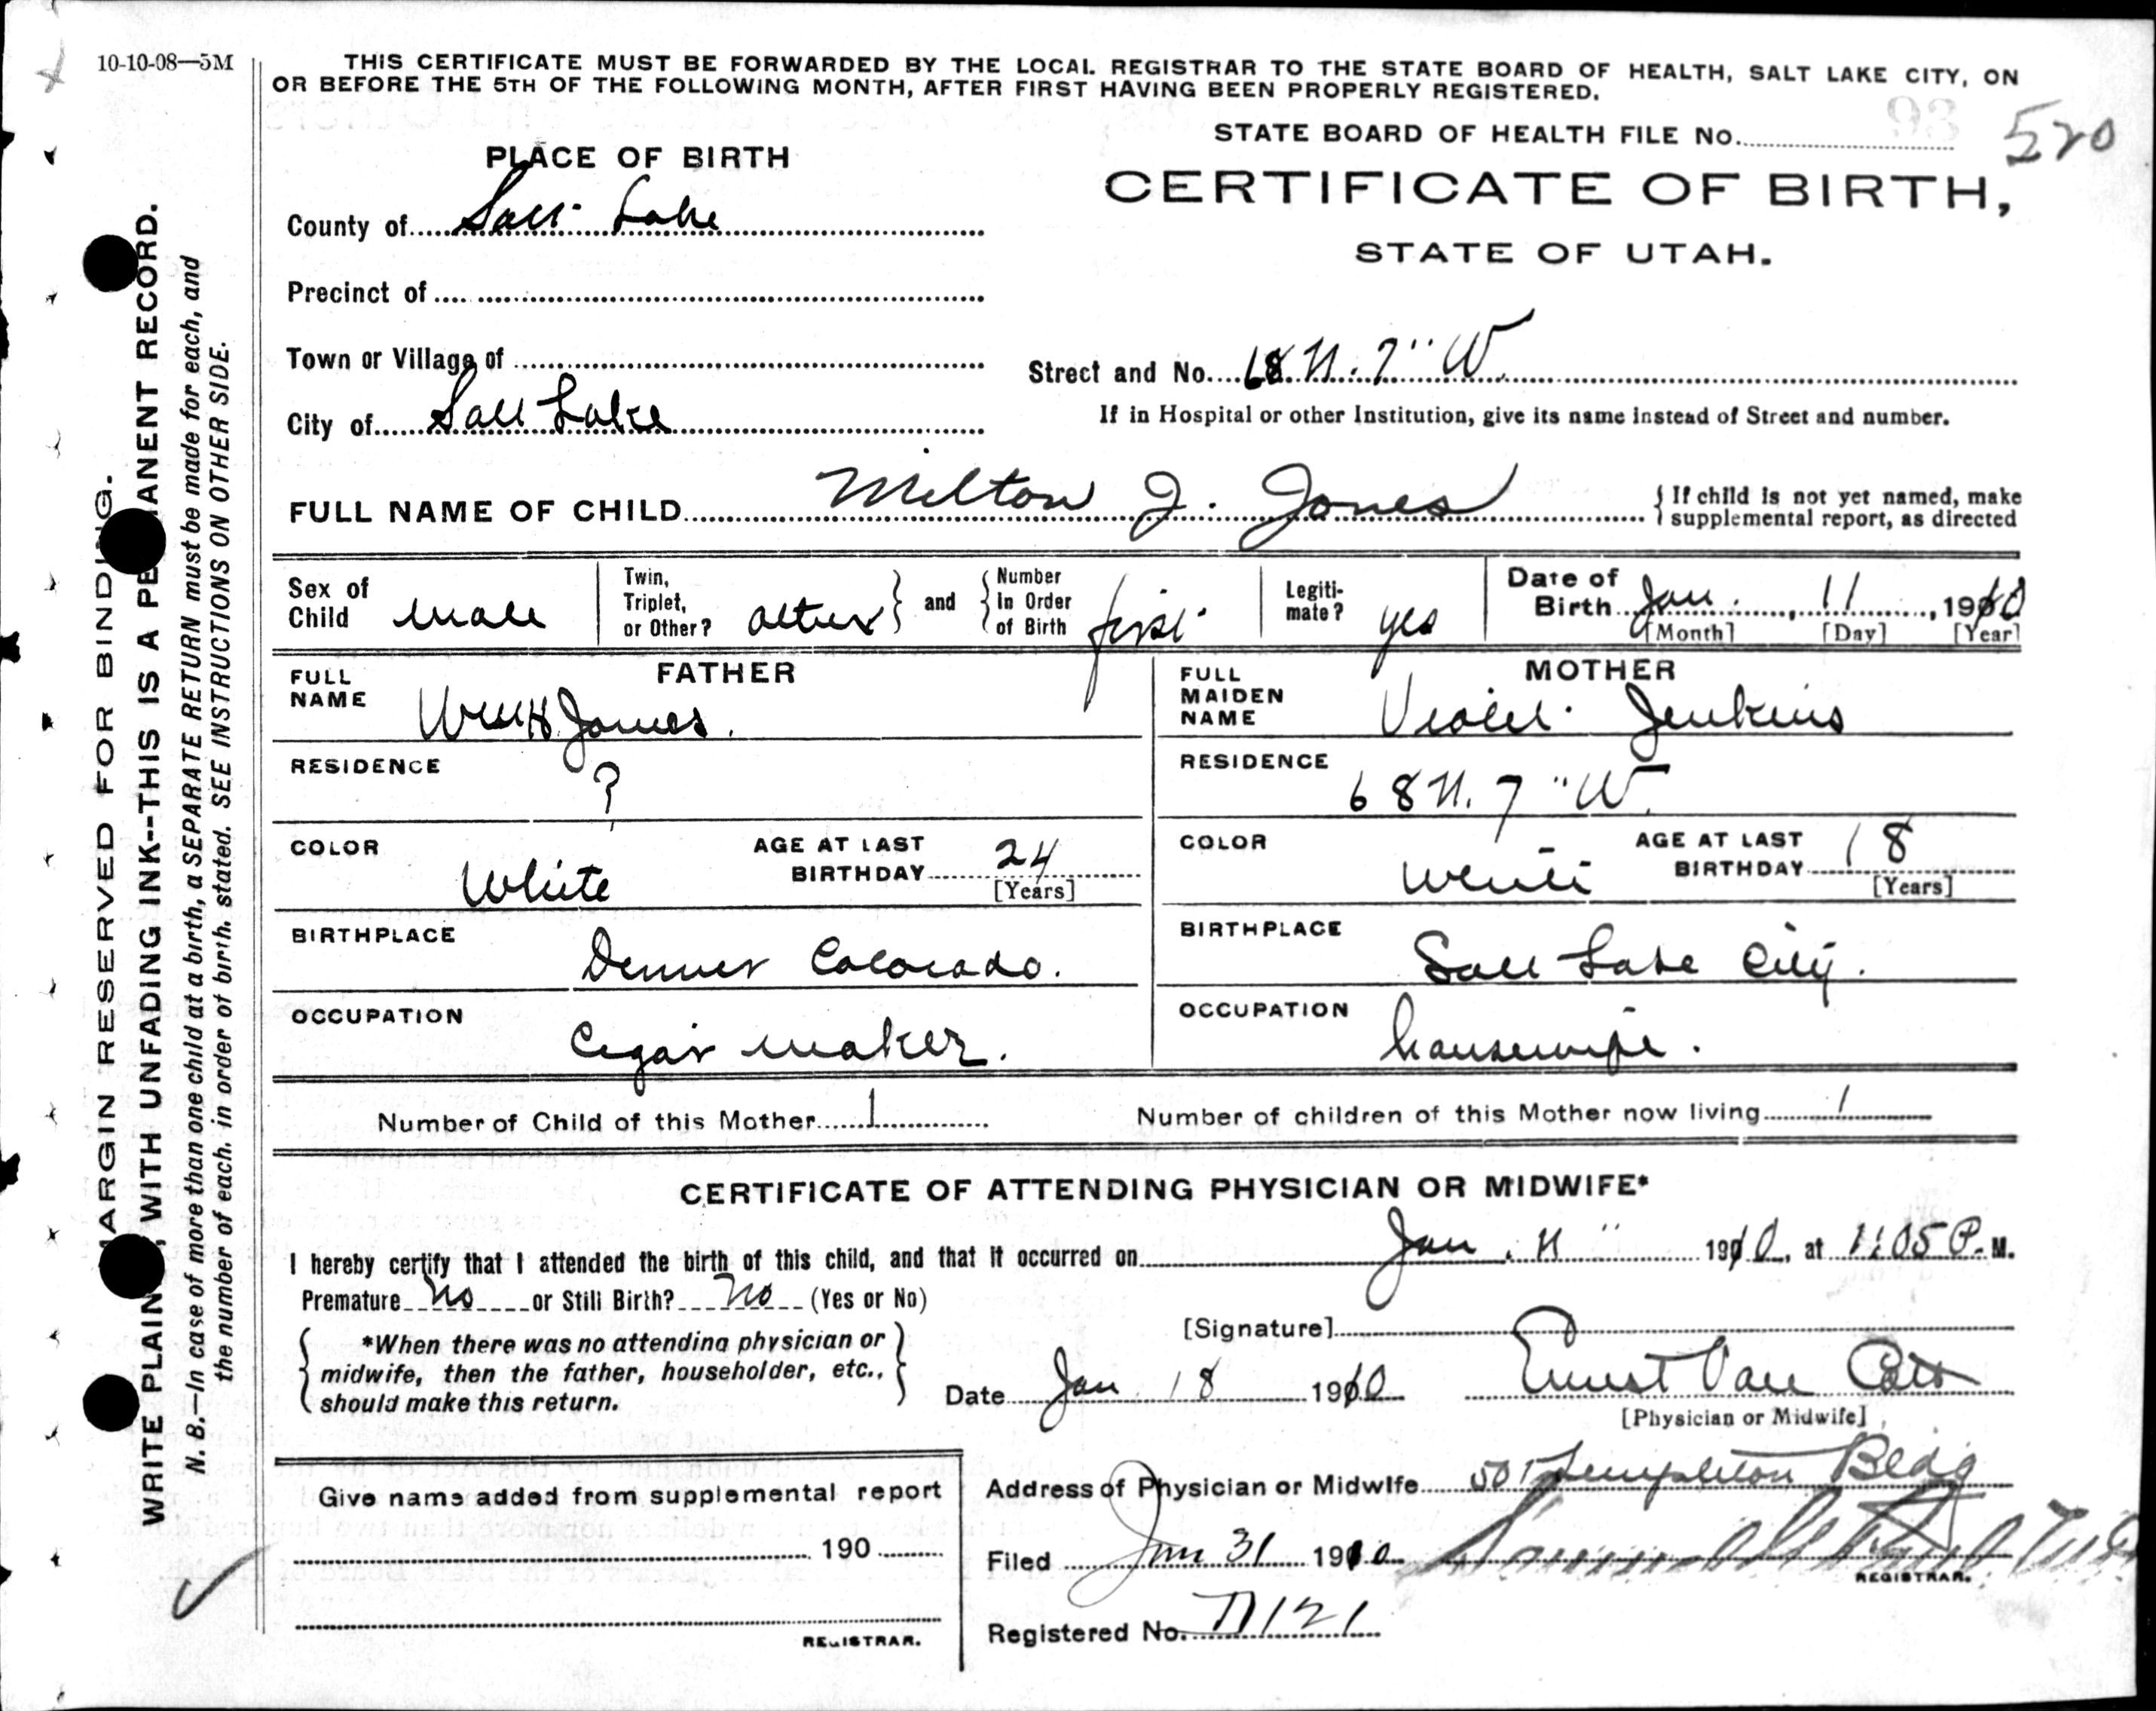 10-10-08—5M
THIS CERTIFICATE MUST BE FORWARDED BY THE LOCAL REGISTRAR TO THE STATE BOARD OF HEALTH, SALT LAKE CITY, ON
OR BEFORE THE 5TH OF THE FOLLOWING MONTH, AFTER FIRST HAVING BEEN PROPERLY REGISTERED.
STATE BOARD OF HEALTH FILE No. 93 520
PLACE OF BIRTH
CERTIFICATE OF BIRTH,
STATE OF UTAH.
County of Salt Lake
Precinct of
Town or Village of
Street and No. 68 N. 7" W.
City of Salt Lake
If in Hospital or other Institution, give its name instead of Street and number.
FULL NAME OF CHILD Milton J. Jones
If child is not yet named, make
supplemental report, as directed
Sex of Child male
Twin, Triplet, or Other? other and Number In Order of Birth first
Legiti-mate? yes
Date of Birth Jan. 11, 1910
[Month] [Day] [Year]
FATHER
FULL NAME Wm H Jones.
RESIDENCE ?
COLOR White
AGE AT LAST BIRTHDAY 24
[Years]
BIRTHPLACE Denver Colorado.
OCCUPATION Cigar maker.
MOTHER
FULL MAIDEN NAME Violet Jenkins
RESIDENCE 68 N. 7" W.
COLOR White
AGE AT LAST BIRTHDAY 18
[Years]
BIRTHPLACE Salt Lake City.
OCCUPATION housewife.
Number of Child of this Mother 1
Number of children of this Mother now living 1
CERTIFICATE OF ATTENDING PHYSICIAN OR MIDWIFE*
I hereby certify that I attended the birth of this child, and that it occurred on Jan. 11" 1910, at 1:05 P. M.
Premature No or Still Birth? No (Yes or No)
*When there was no attending physician or
midwife, then the father, householder, etc.,
should make this return.
[Signature]
Ernest Van Cott
[Physician or Midwife]
Date Jan 18 1910
Address of Physician or Midwife 501 Templeton Bldg
Filed Jan 31 1910
REGISTRAR.
Registered No. D121
Give name added from supplemental report
190
REGISTRAR.
MARGIN RESERVED FOR BINDING.
WRITE PLAINLY, WITH UNFADING INK--THIS IS A PERMANENT RECORD.
N. B.—In case of more than one child at a birth, a SEPARATE RETURN must be made for each, and
the number of each, in order of birth, stated. SEE INSTRUCTIONS ON OTHER SIDE.